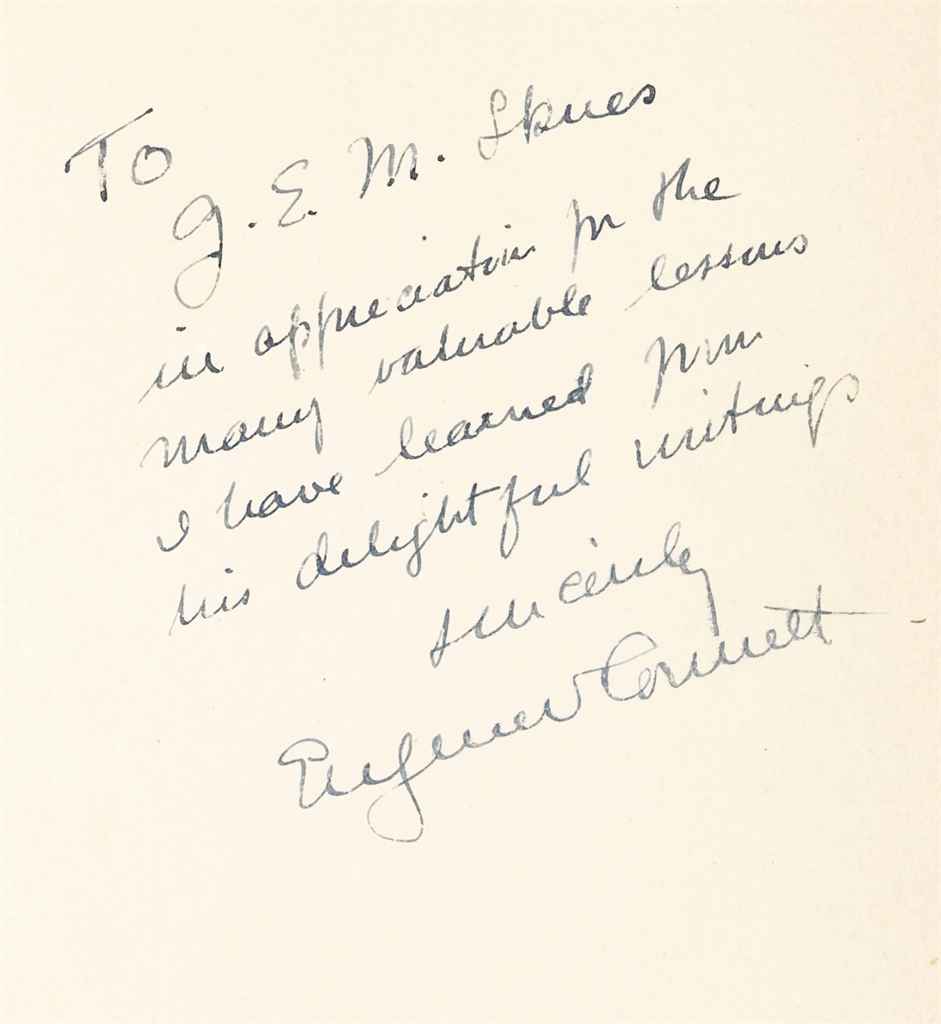 To
G. E. M. Skues
in appreciation for the
many valuable lessons
I have learned from
his delightful writings
Sincerely
Eugene V Connett